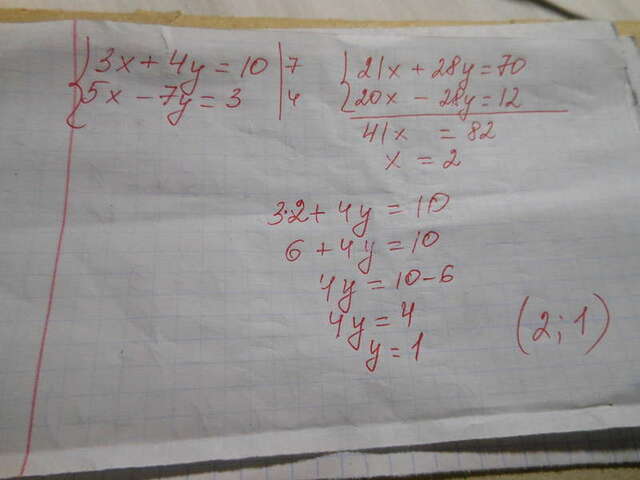 {3x + 4y = 10 | 7
5x - 7y = 3 | 4
{21x + 28y = 70
20x - 28y = 12
41x = 82
x = 2
3·2 + 4y = 10
6 + 4y = 10
4y = 10 - 6
4y = 4
y = 1
(2; 1)